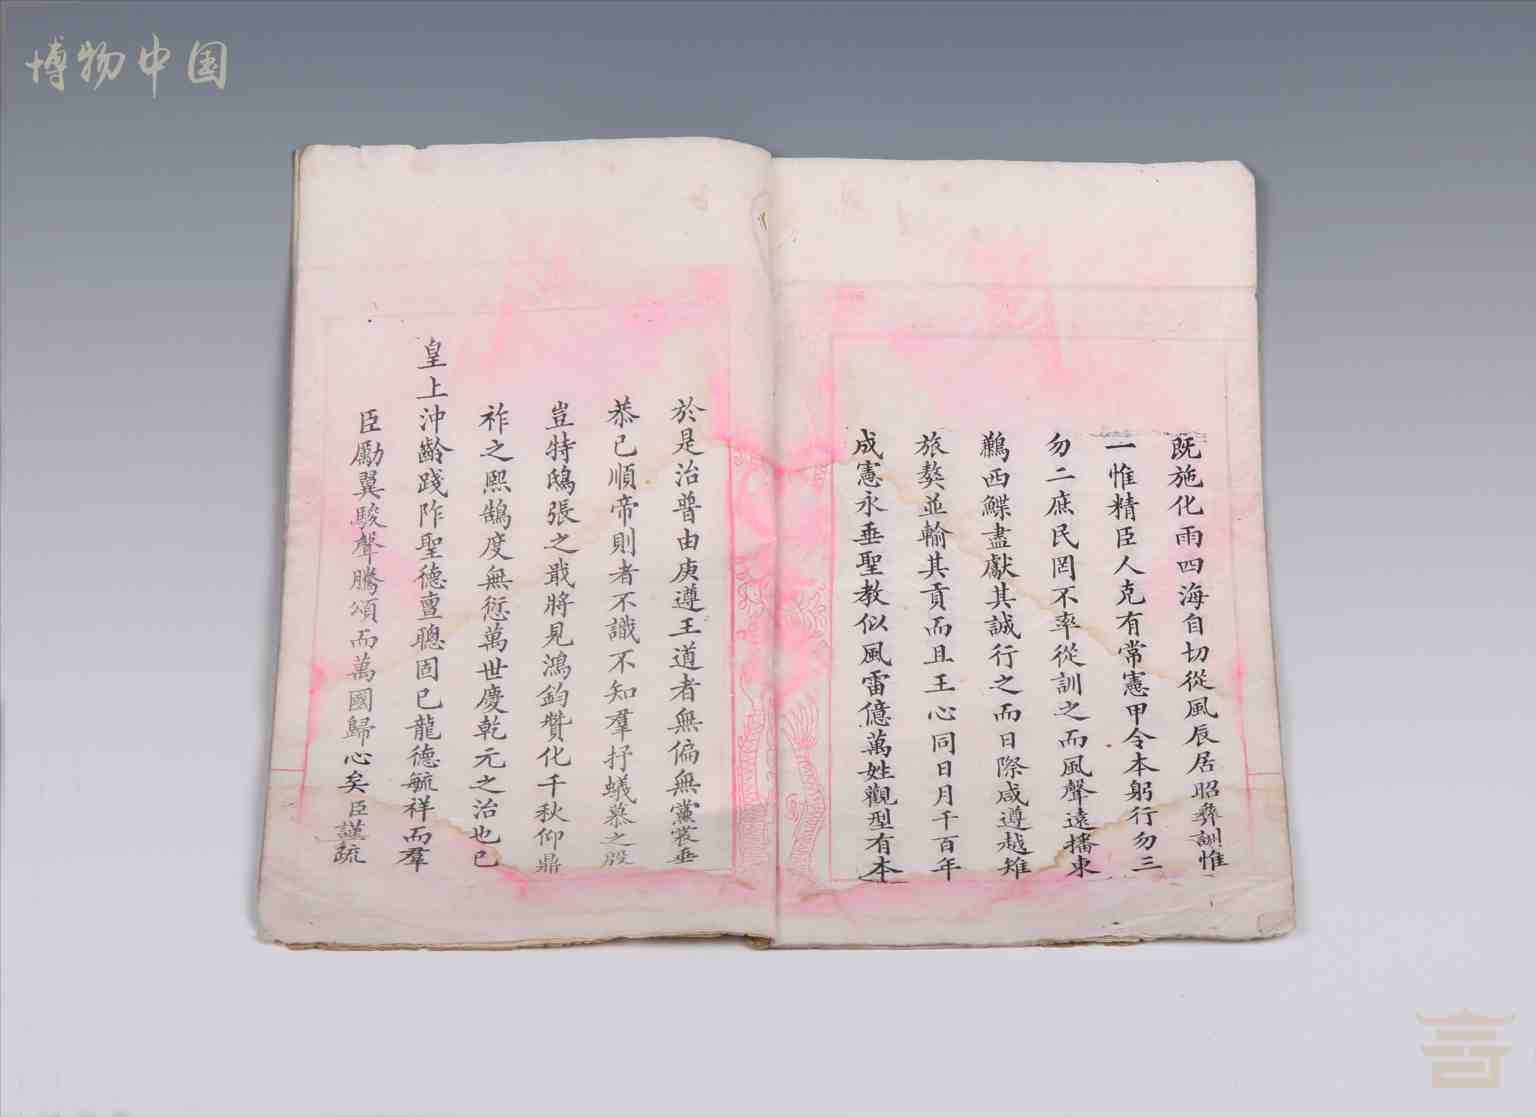 博物中国
既施化雨四海自切從風辰居昭彝訓惟
一惟精臣人克有常憲甲令本躬行勿三
勿二庶民罔不率從訓之而風聲遠播東
鶼西鰈盡獻其誠行之而日際咸遵越雉
旅獒並輸其貢而且王心同日月千百年
成憲永垂聖教似風雷億萬姓觀型有本
於是治普由庚遵王道者無偏無黨裳垂
恭己順帝則者不識不知羣抒蟻慕之殷
豈特鴟張之戢將見鴻鈞贊化千秋仰鼎
祚之熙鵠度無愆萬世慶乾元之治也已
皇上沖齡踐阼聖德亶聰固已龍德毓祥而羣
臣勵翼駿聲騰頌而萬國歸心矣臣謹疏